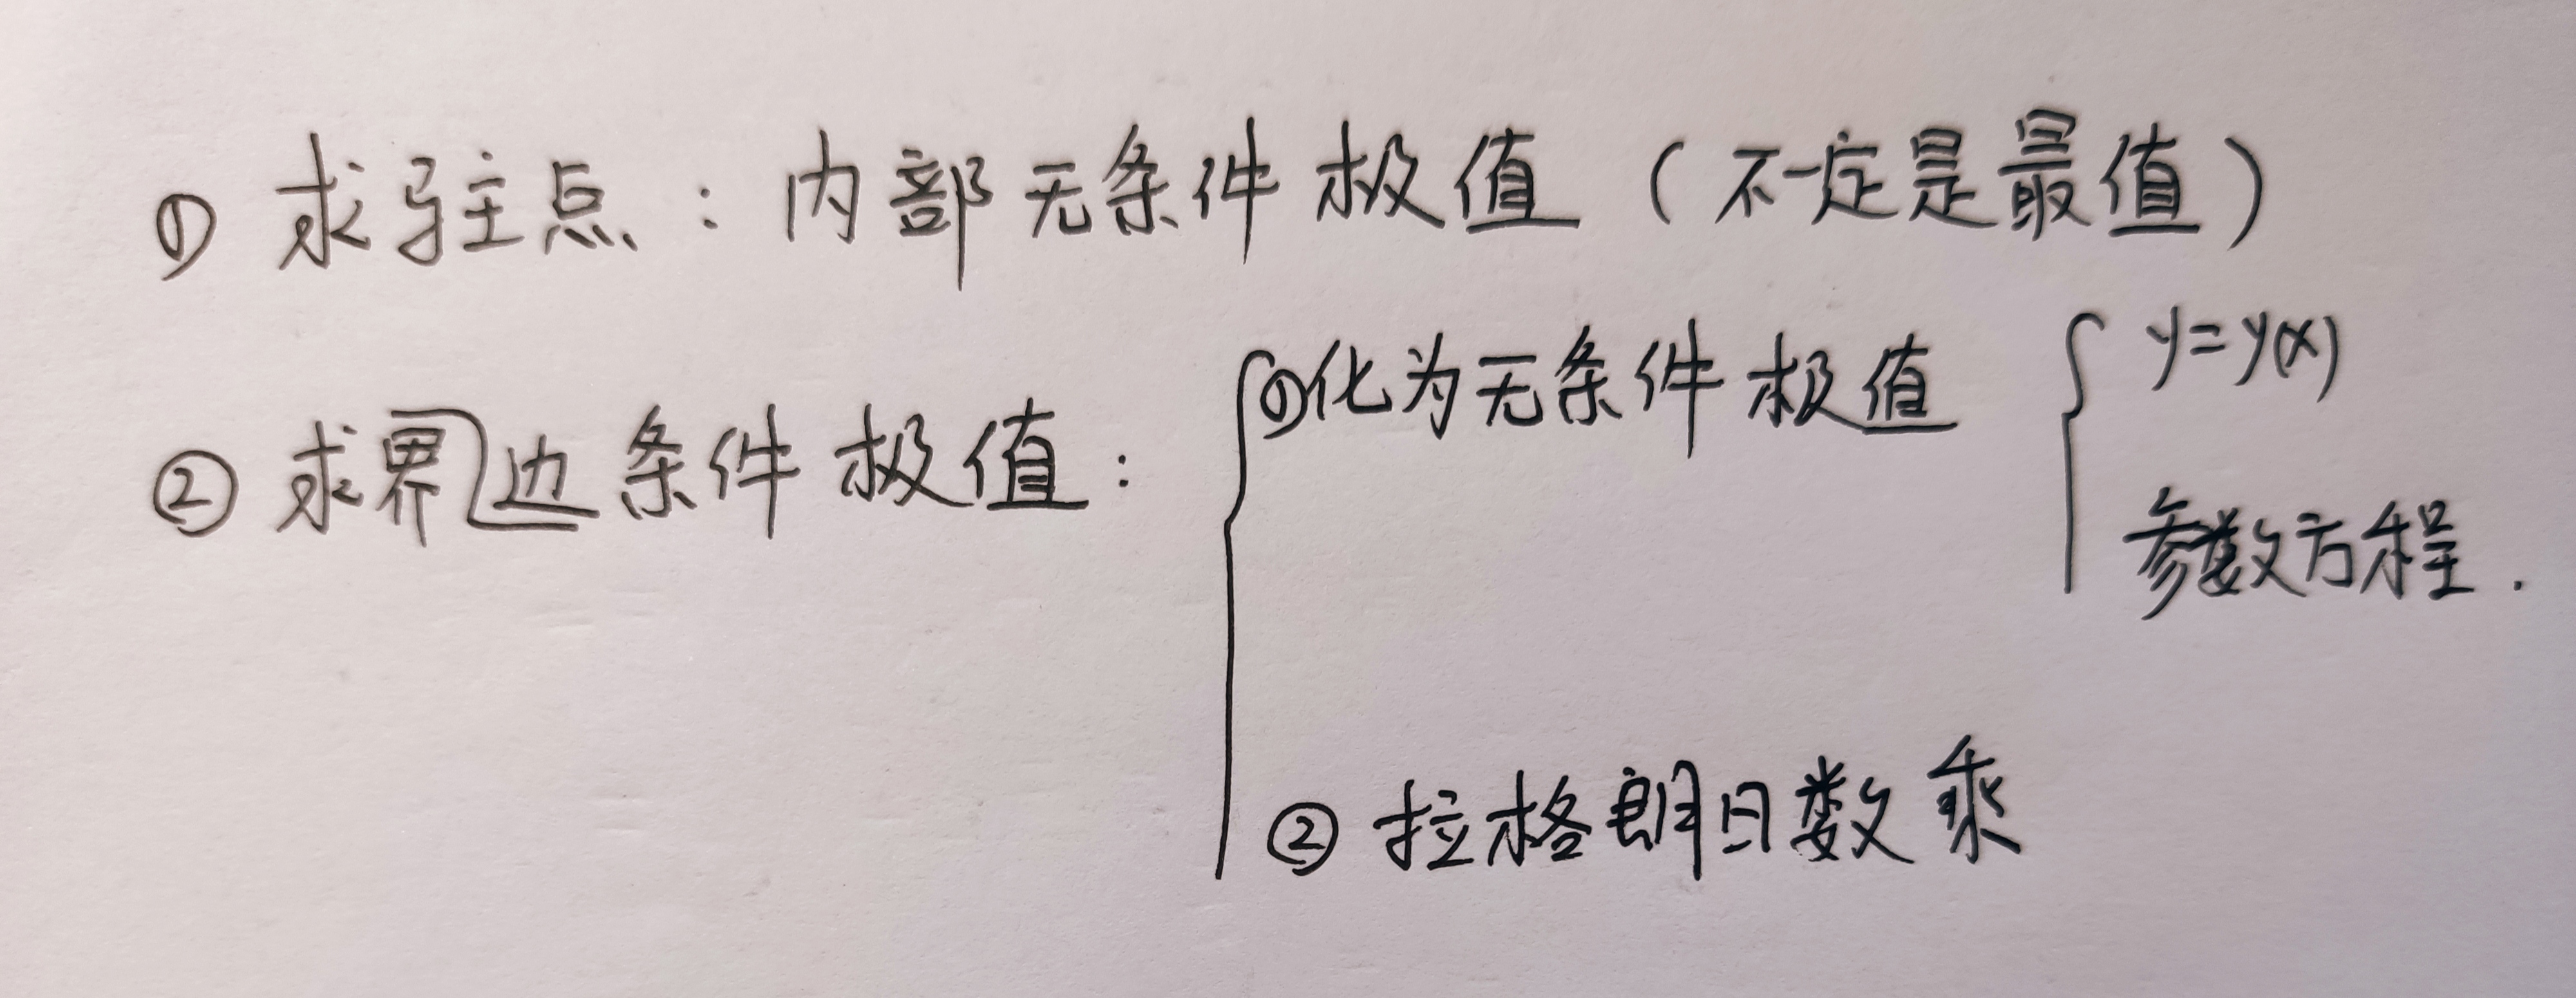 ① 求驻点：内部无条件极值（不一定是最值）
② 求界边条件极值：
①化为无条件极值
y=y(x)
参数方程.
② 拉格朗日数乘